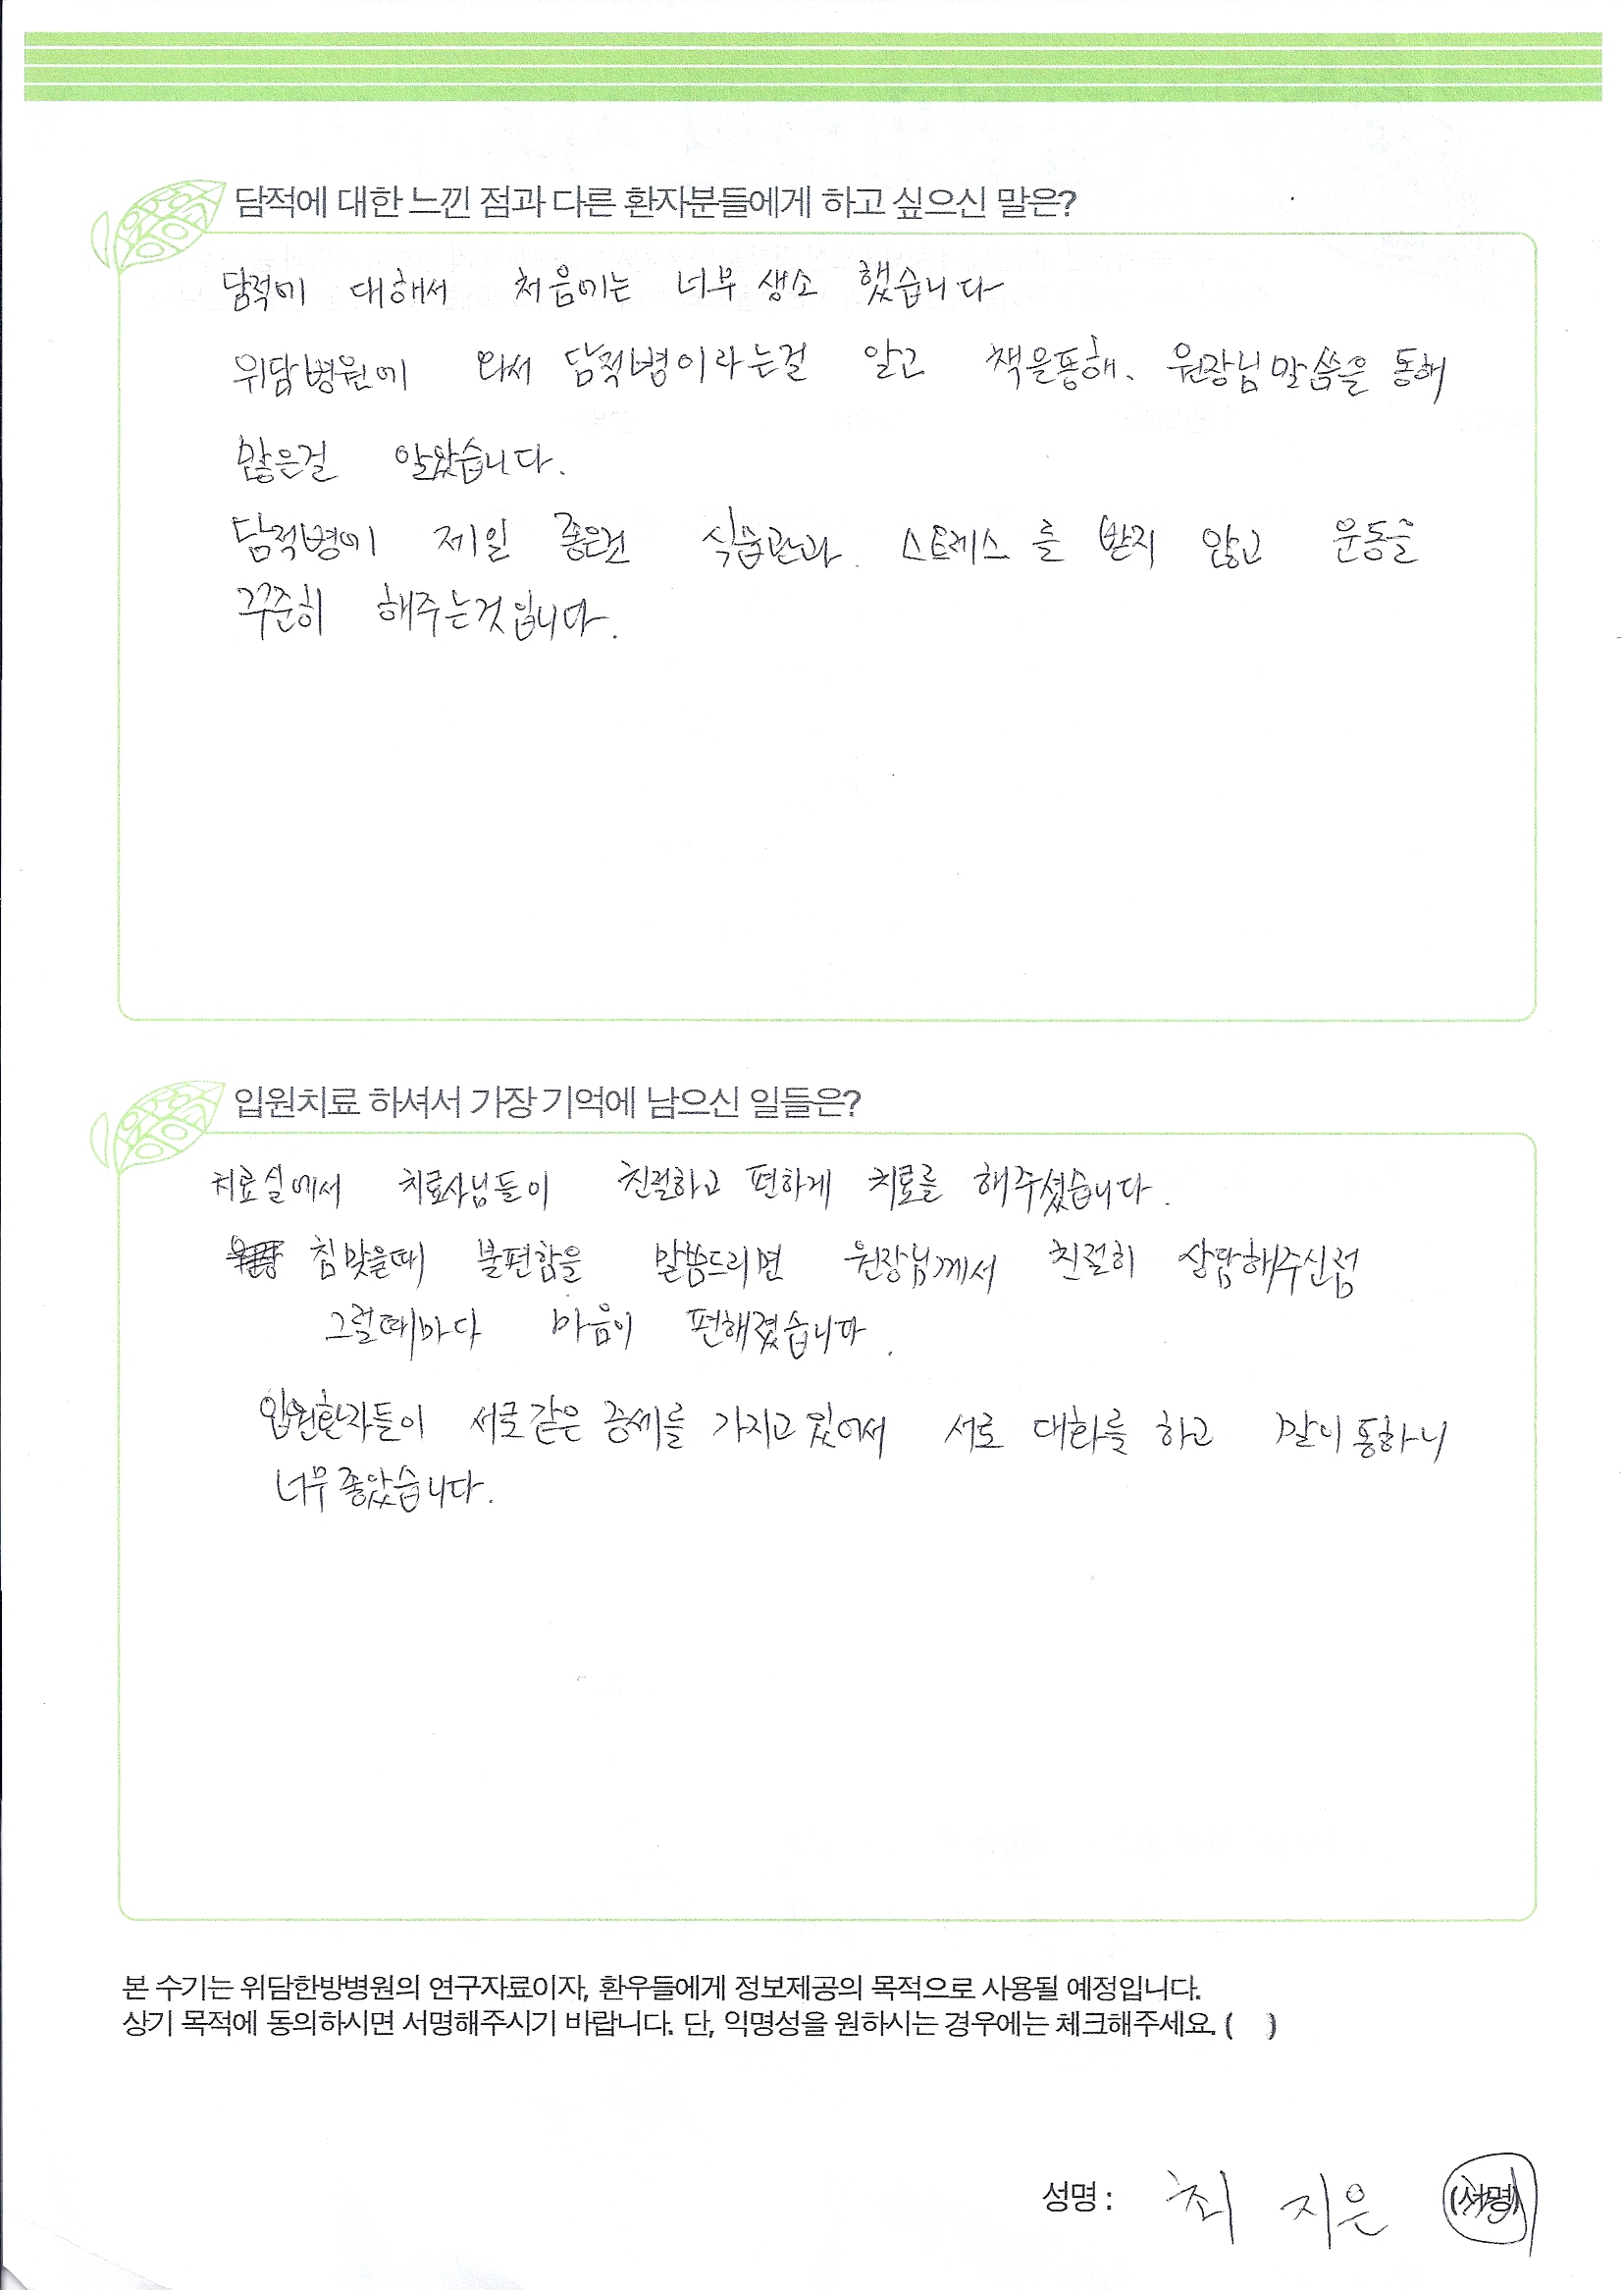 담적에 대한 느낀 점과 다른 환자분들에게 하고 싶으신 말은?
담적에 대해서 처음에는 너무 생소 했습니다
위담병원에 와서 담적병이라는걸 알고 책을통해、 원장님말씀을 통해
많은걸 알았습니다.
담적병에 제일 좋은건 식습관과. 스트레스를 받지 않고 운동을
꾸준히 해주는것입니다.
입원치료 하셔서 가장 기억에 남으신 일들은?
치료실에서 치료사님들이 친절하고 편하게 치료를 해주셨습니다.
침맞을때 불편함을 말씀드리면 원장님께서 친절히 상담해주신점
그럴때마다 마음이 편해졌습니다.
입원환자들이 서로같은 증세를 가지고있어서 서로 대화를 하고 말이통하니
너무좋았습니다.
본 수기는 위담한방병원의 연구자료이자, 환우들에게 정보제공의 목적으로 사용될 예정입니다.
상기 목적에 동의하시면 서명해주시기 바랍니다. 단, 익명성을 원하시는 경우에는 체크해주세요. ( )
성명 : 최 지은 (서명)